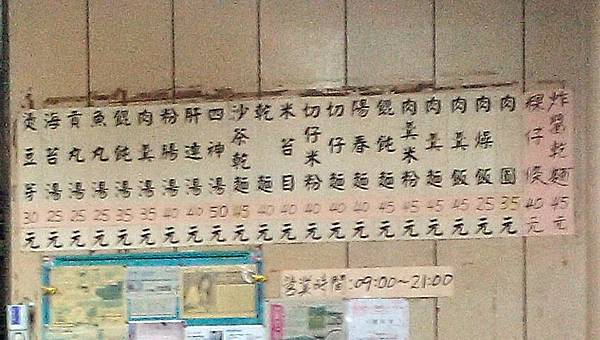 炸醬乾麵45元
粿仔條40元
肉圓35元
肉燥飯25元
肉羹飯45元
肉羹麵45元
肉羹米粉45元
餛飩麵45元
陽春麵40元
切仔麵40元
切仔米粉40元
米苔目40元
乾麵40元
沙茶乾麵45元
四神湯50元
肝連湯40元
粉腸湯40元
肉羹湯35元
餛飩湯35元
魚丸湯25元
貢丸湯25元
海苔湯25元
燙豆芽30元
營業時間:09:00~21:00